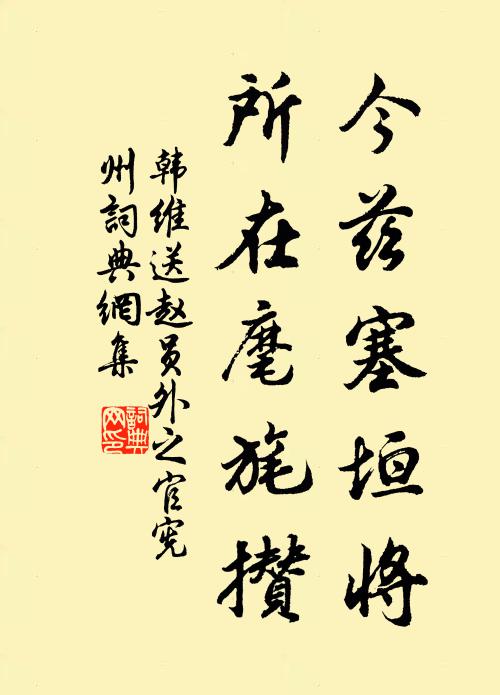 今兹塞垣将
所在麾旄攒
韩维送赵员外之官宪
州词典網集
詞典网印